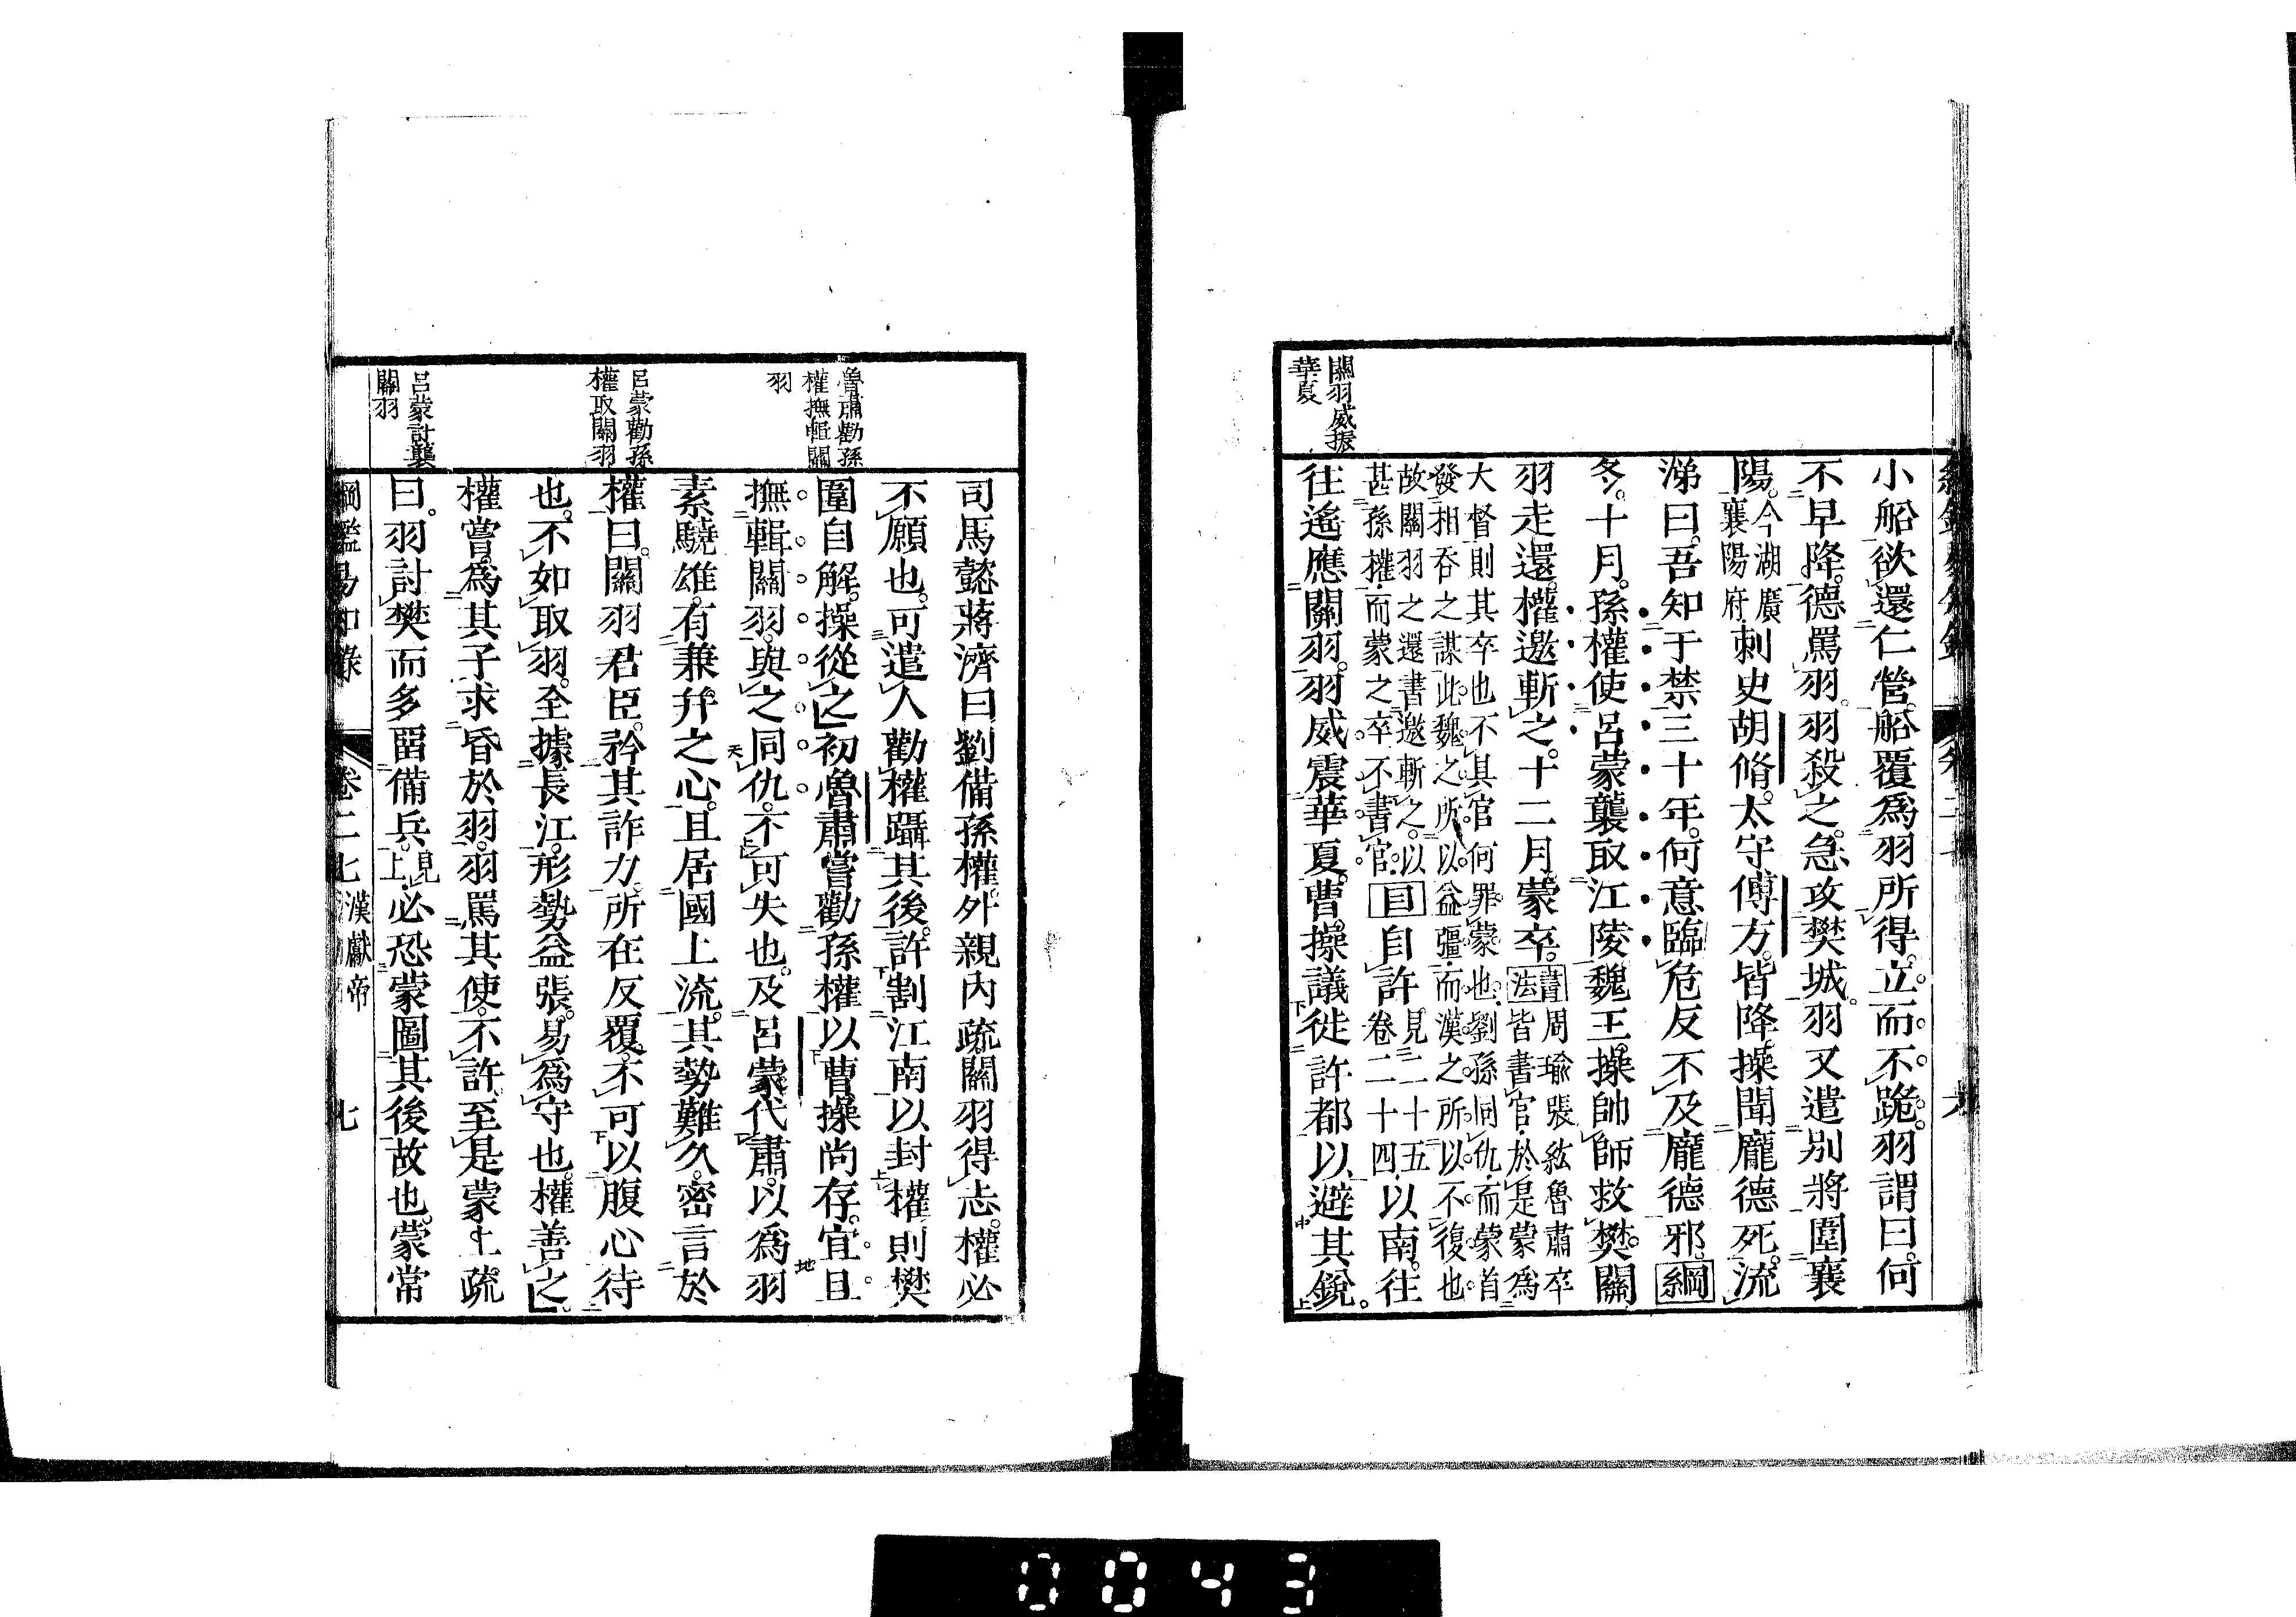 關羽威振
華夏
小船欲還仁營。船覆爲羽所得。立而不跪。羽謂曰。何
不早降。德罵羽。羽殺之。急攻樊城。羽又遣別將圍襄
陽。今湖廣襄陽府。刺史胡脩。太守傅方。皆降。操聞龐德死。流
涕曰。吾知于禁三十年。何意臨危反不及龐德邪。綱
冬。十月。孫權使呂蒙襲取江陵。魏王操帥師救樊。關
羽走還。權邀斬之。十二月。蒙卒。書法周瑜張紘魯肅卒
皆書官。於是蒙爲
大督。則其卒也不其官何罪。蒙也。劉孫同仇。而蒙首
發相吞之謀。此魏之所以益彊。而漢之所以不復也。
故關羽之還書邀斬之。以
甚孫權。而蒙之卒。不書官。目自許見二十五
卷二十四以南。往
往遙應關羽。羽威震華夏。曹操議徙許都以避其銳。
魯肅勸孫
權撫輯關
羽
呂蒙勸孫
權取關羽
呂蒙計襲
關羽
司馬懿蔣濟曰劉備孫權。外親內疏。關羽得志。權必
不願也。可遣人勸權躡其後。許割江南以封權則樊
圍自解。操從之初魯肅嘗勸孫權以曹操尚存。宜且
撫輯關羽。與之同仇。不可失也。及呂蒙代肅。以爲羽
素驍雄。有兼幷之心。且居國上流。其勢難久。密言於
權曰。關羽君臣。矜其詐力。所在反覆。不可以腹心待
也。不如取羽。全據長江。形勢益張。易爲守也。權善之。
權嘗爲其子求昏於羽。羽罵其使。不許。至是蒙上疏
曰。羽討樊而多留備兵。見上必恐蒙圖其後故也。蒙常
綱鑑易知錄 卷二七 漢獻帝 七